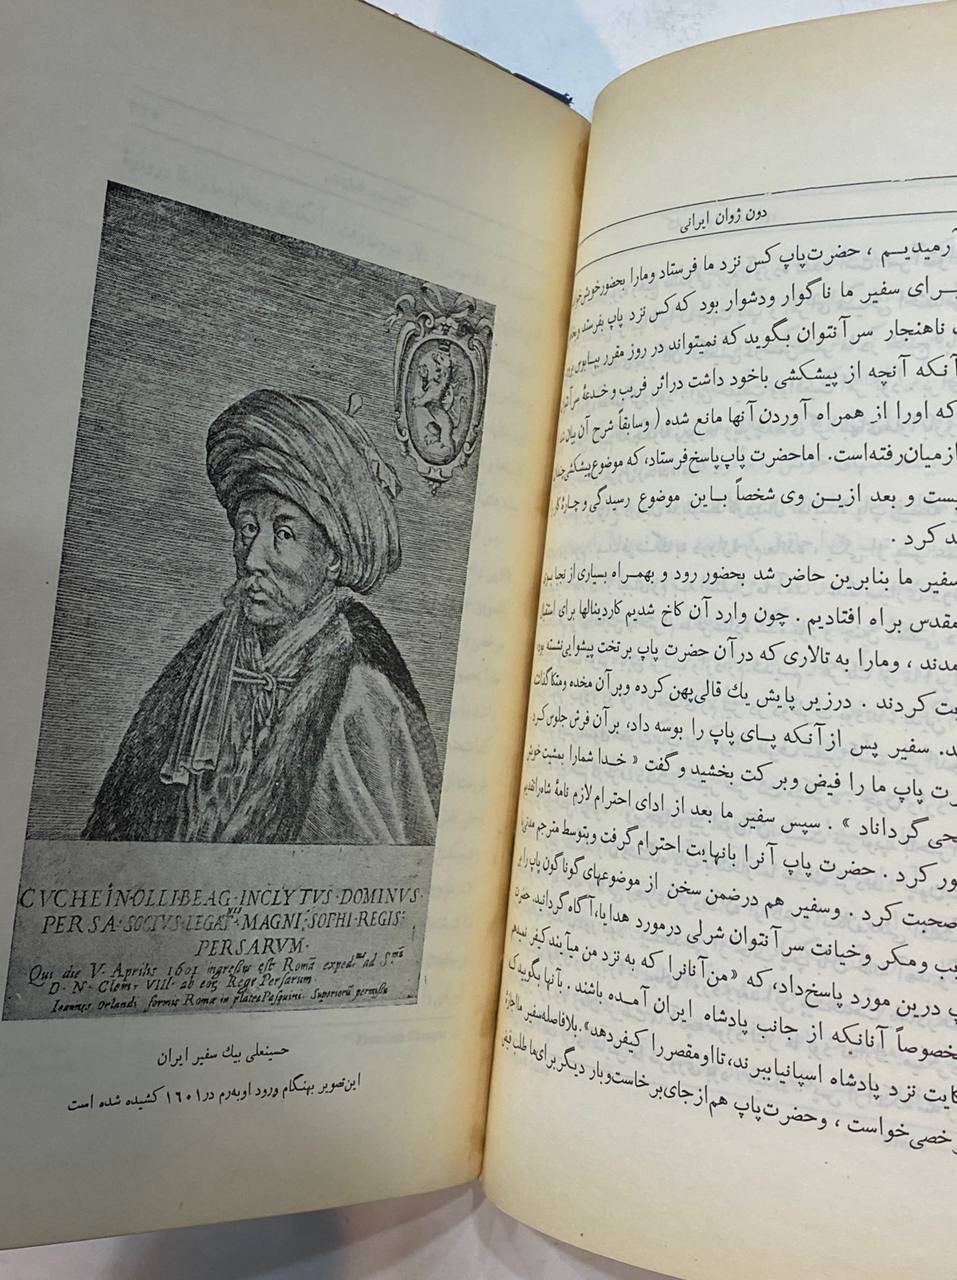 CVCHEINOLLIBEAG·INCLYTVS·DOMINVS·
PERSA·SOCIVS·LEGAT·MAGNI·SOPHI·REGIS·
PERSARVM·
Qui die V. Aprilis 1601 ingressus est Romã exped. ad S.
D. N. Clem. VIII. ab eoq Rege Persarum.
Ioannes Orlandi formis Romæ in platea Pasquini. Superiorũ permissu
حسینعلی بیك سفیر ایران
این تصویر بهنگام ورود او به رم در ۱۶۰۱ کشیده شده است
دون ژوان ایرانی
آرمیدیم ، حضرت پاپ کس نزد ما فرستاد ومارا بحضور
برای سفیر ما ناگوار ودشوار بود که کس نزد پاپ بفرستد
ناهنجار سرآنتوان بگوید که نمیتواند در روز مقرر
آنکه آنچه از پیشکشی باخود داشت دراثر فریب و خدعهٔ
که اورا از همراه آوردن آنها مانع شده ( وسابقاً شرح آن
ازمیان رفته است. اماحضرت پاپ پاسخ فرستاد، که موضوع پیشکشی
و بعد ازین وی شخصاً باین موضوع رسیدگی و چارهٔ
کرد .
سفیر ما بنابرین حاضر شد بحضور رود و بهمراه بسیاری از نجبا
مقدس براه افتادیم . چون وارد آن کاخ شدیم کاردینالها برای
، ومارا به تالاری که درآن حضرت پاپ برتخت پیشوایی نشسته بود
کردند . درزیر پایش یك قالی پهن کرده وبرآن مخده ومتکا
سفیر پس ازآنکه پای پاپ را بوسه داد، برآن فرش جلوس کرد
پاپ ما را فیض وبرکت بخشید و گفت « خدا شمارا بمشیت خویش
گرداناد » . سپس سفیر ما بعد از ادای احترام لازم نامهٔ شاه را
کرد . حضرت پاپ آنرا بانهایت احترام گرفت وبتوسط مترجم مدتی
صحبت کرد . وسفیر هم درضمن سخن از موضوعهای گوناگون پاپ را
ومکر وخیانت سرآنتوان شرلی درمورد هدایا، آگاه گردانید. حضرت
درین مورد پاسخ داد، که «من آنانرا که به نزد من میآیند کیفر نمیدهم
آنانیکه از جانب پادشاه ایران آمده باشند . بآنها بگویید که
نزد پادشاه اسپانیا ببرند، تا او مقصر را کیفر دهد». بلافاصله سفیر ما
خواست ، وحضرت پاپ هم ازجای برخاست وبار دیگر برای ما طلب